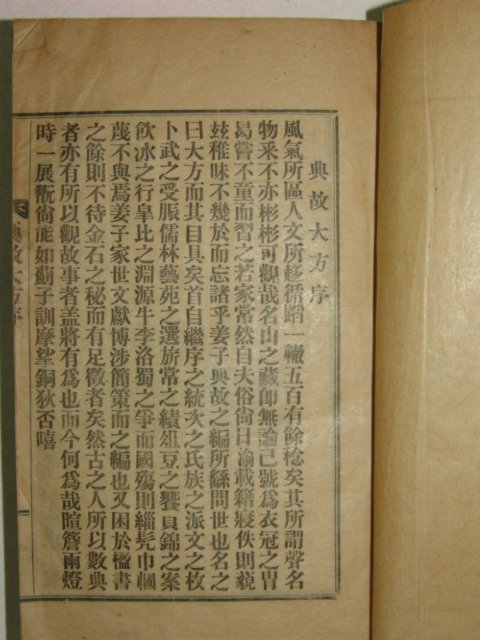 典故大方序
風氣所區人文所移循蹈一轍五百有餘稔矣其所謂聲名
物釆不亦彬彬可觀哉名山之藏卽無論已號爲衣冠之冑
曷嘗不童而習之若家常然自夫俗尙日渝載籍寢佚則藐
玆稚昧不幾於而忘諸乎姜子典故之編所繇問世也名之
曰大方而其目具矣首自繼序之統次之氏族之派文之枚
卜武之受脤儒林藝苑之選旂常之績俎豆之饗貝錦之案
飮冰之行皐比之淵源牛李洛蜀之爭而國殤則緇髡巾幗
蔑不與焉姜子家世文獻博涉簡策而之編也又困於楹書
之餘則不待金石之秘而有足徵者矣然古之人所以數典
者亦有所以觀故事者盖將有爲也而今何爲哉暄簷雨燈
時一展翫尙能如薊子訓摩挲銅狄否嘻
典故大方序